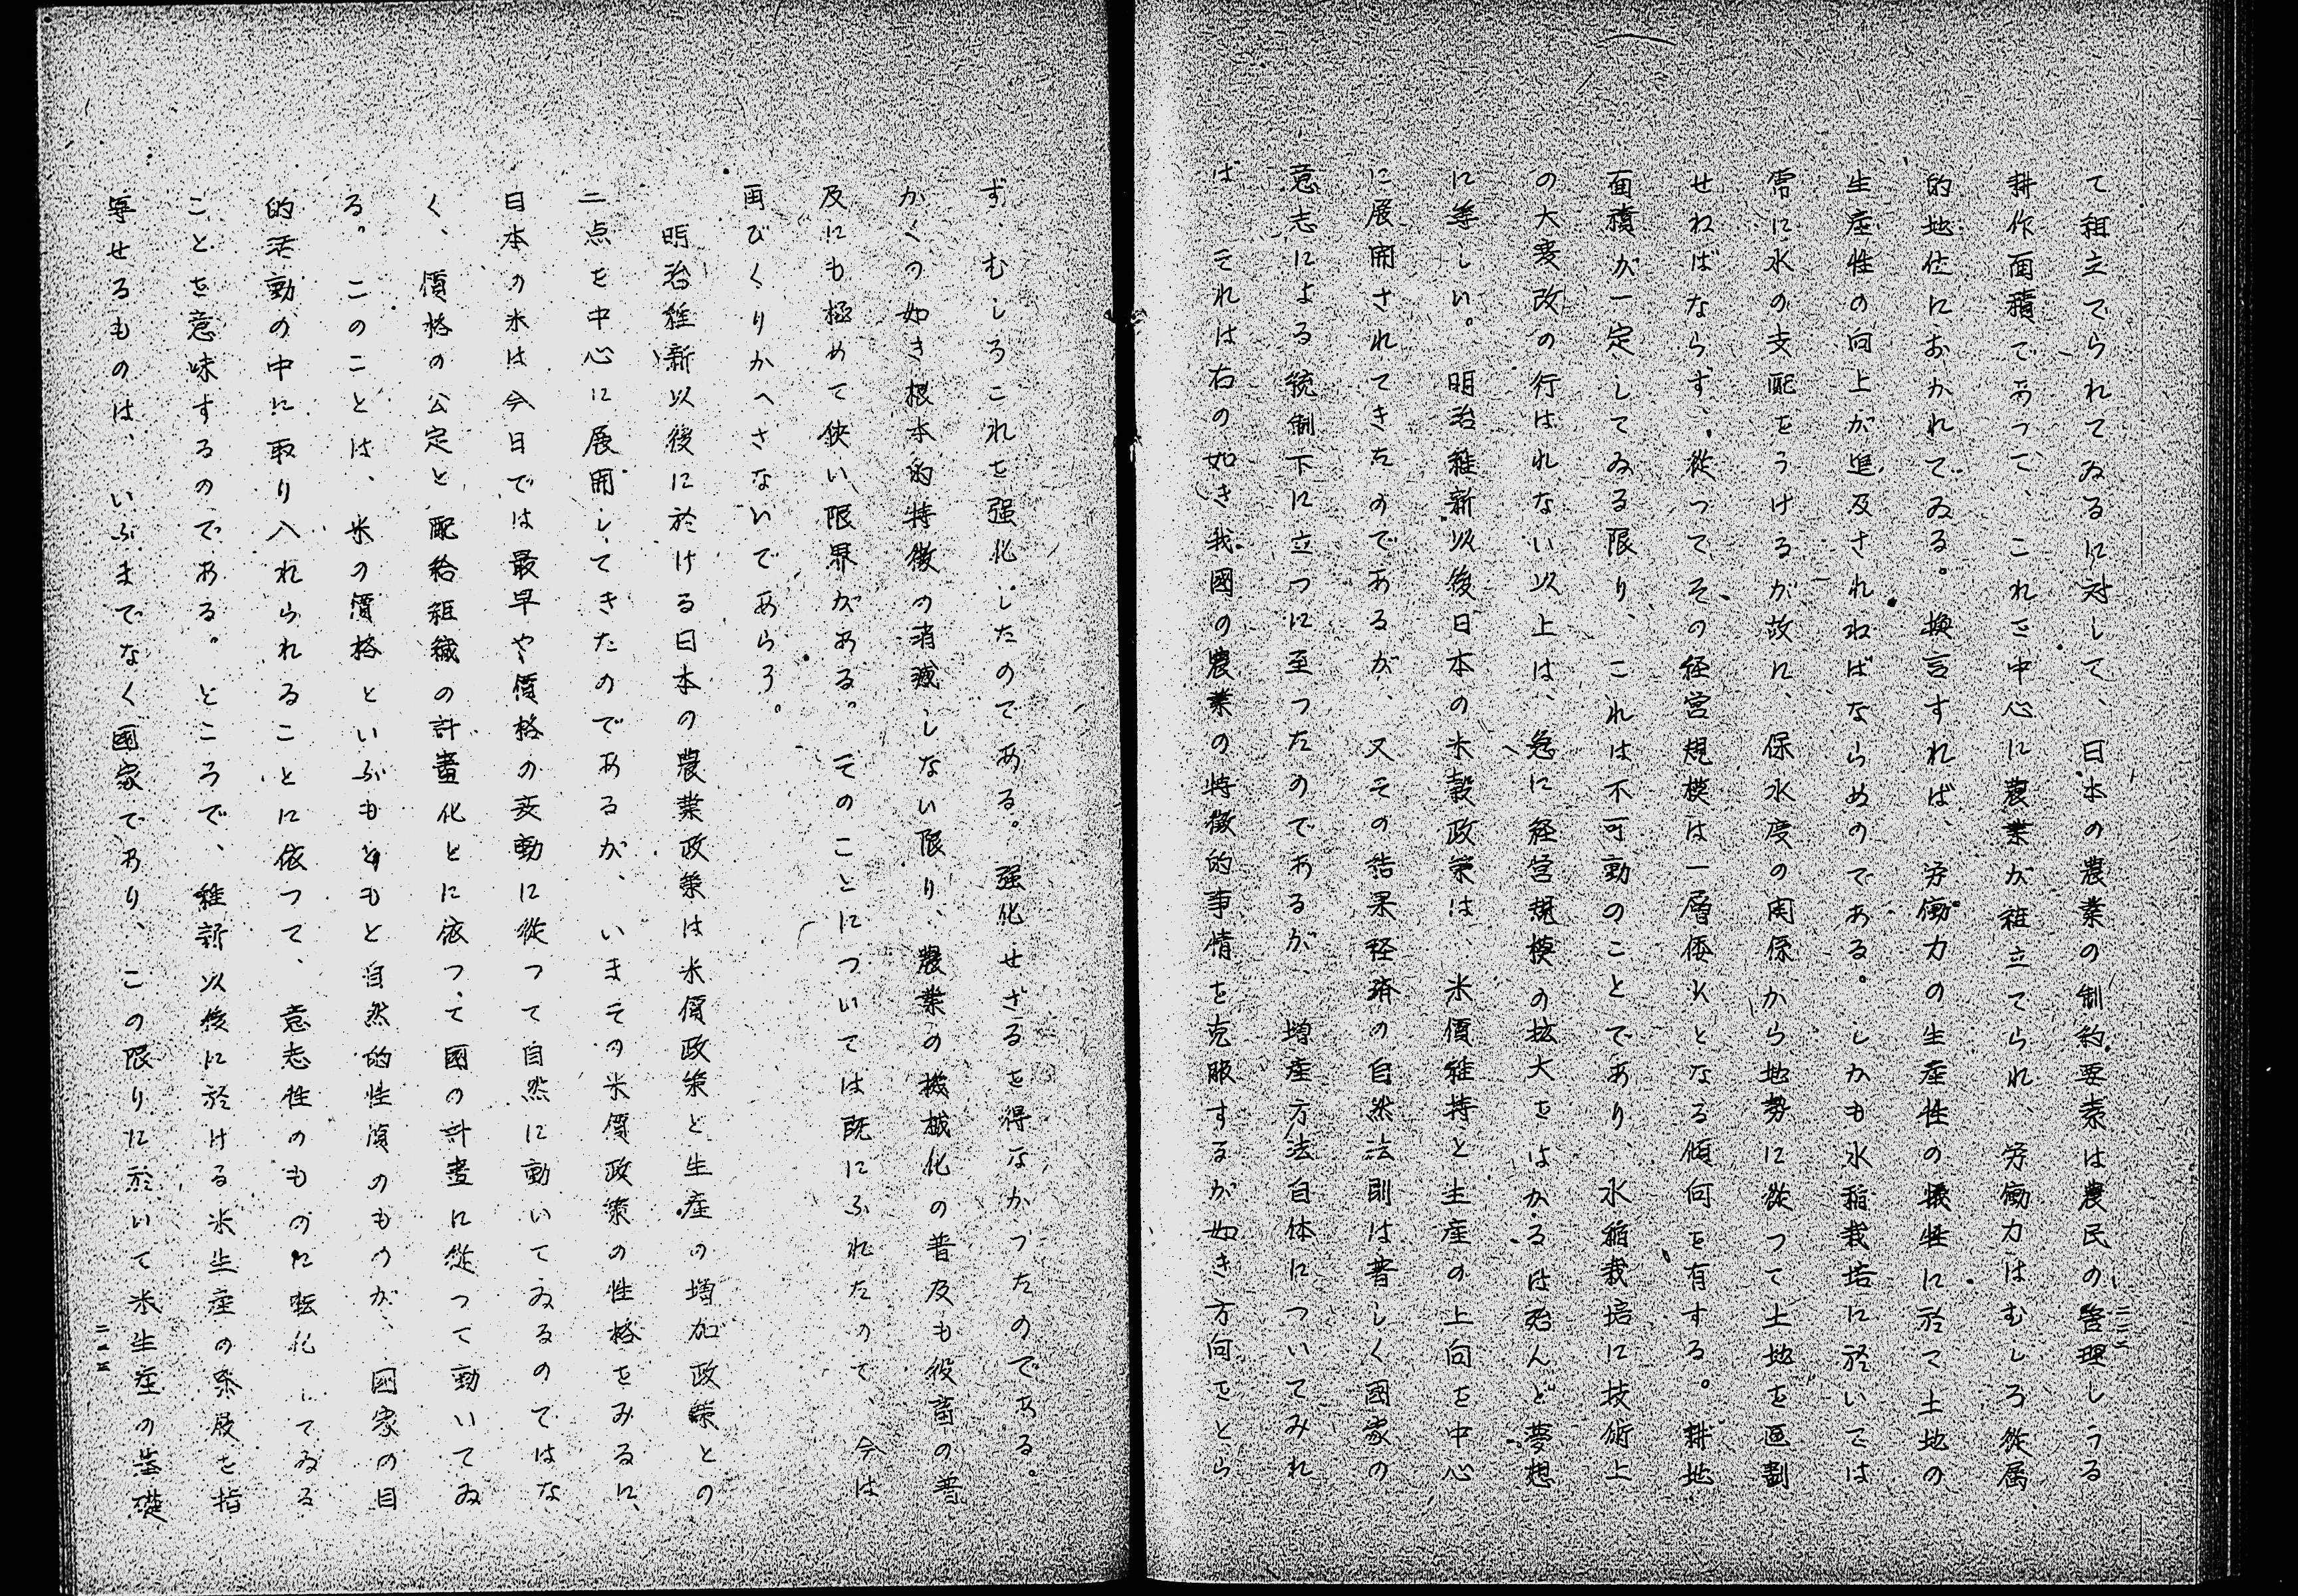 て組立てられてゐるに対して、日本の農業の制約要素は農民の管理しうる
耕作面積であつて、これを中心に農業が組立てられ、労働力はむしろ従属
的地位におかれてゐる。換言すれば、労働力の生産性の犠牲に於て土地の
生産性の向上が追及されねばならぬのである。しかも水稲栽培に於いては
常に水の支配をうけるが故に、保水度の関係から地勢に従つて土地を区劃
せねばならず、従つてその経営規模は一層倭小となる傾向を有する。耕地
面積が一定してゐる限り、これは不可動のことであり、水稲栽培に技術上
の大変改の行はれない以上は、急に経営規模の拡大をはかるは殆んど夢想
に等しい。明治維新以後日本の米穀政策は、米價維持と生産の上向を中心
に展開されてきたのであるが、又その結果経済の自然法則は普しく國家の
意志による統制下に立つに至つたのであるが、増産方法自体についてみれ
ば、それは右の如き我國の農業の特徴的事情を克服するが如き方向をとら
ず、むしろこれを強化したのである。強化せざるを得なかつたのである。
かくの如き根本的特徴の消滅しない限り、農業の機械化の普及も役畜の普
及にも極めて狭い限界がある。そのことについては既にふれたので、今は
再びくりかへさないであらう。
明治維新以後に於ける日本の農業政策は米價政策と生産の増加政策との
二点を中心に展開してきたのであるが、いまその米價政策の性格をみるに、
日本の米は今日では最早や價格の変動に従つて自然に動いてゐるのではな
く、價格の公定と配給組織の計畫化とに依つて國の計畫に従つて動いてゐ
る。このことは、米の價格といふものがもと自然的性質のものが、國家の目
的活動の中に取り入れられることに依つて、意志性のものに転化してゐる
ことを意味するのである。ところで、維新以後に於ける米生産の発展を指
導せるものは、いふまでなく國家であり、この限りに於いて米生産の基礎